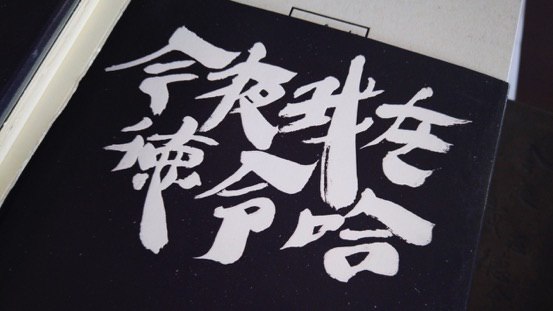 今夜我在
德令哈